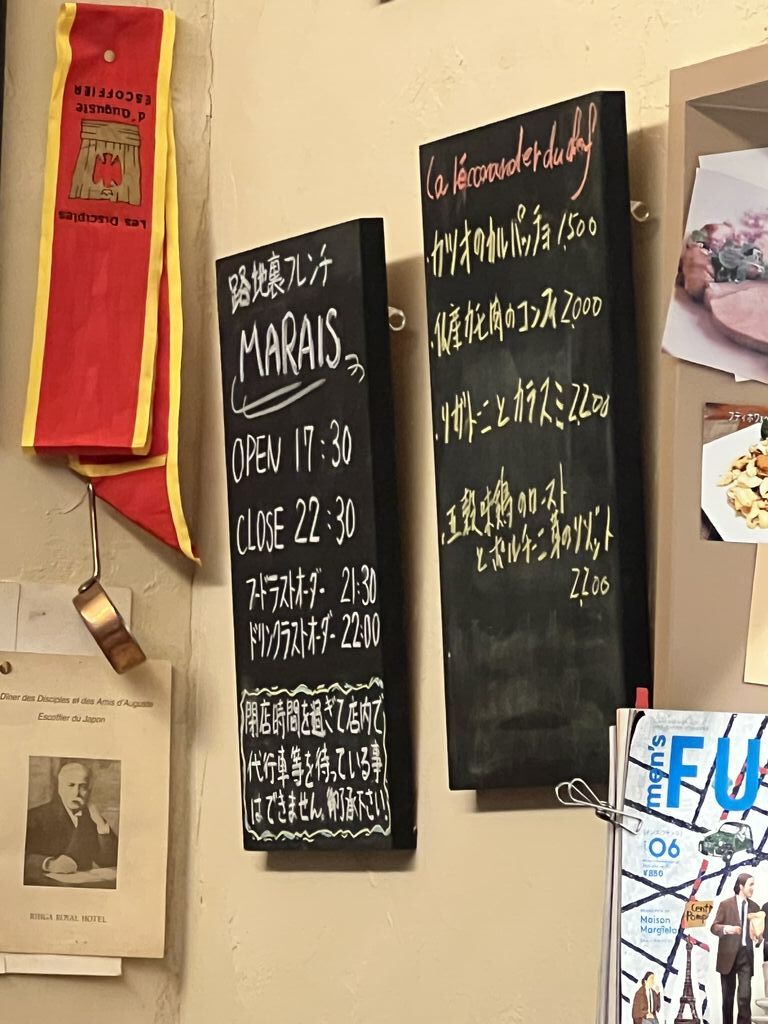 Les Disciples
d'Auguste
ESCOFFIER
路地裏フレンチ
MARAIS
OPEN 17:30
CLOSE 22:30
フードラストオーダー 21:30
ドリンクラストオーダー 22:00
閉店時間を過ぎて店内で
代行車等を待っている事
はできません。御了承下さい。
・カツオのカルパッチョ 1,500
・仏産カモ肉のコンフィ 2,000
・リガトーニとカラスミ 2,200
・五穀味鶏のロースト
とポルチーニ茸のリゾット
2,200
Dîner des Disciples et des Amis d'Auguste
Escoffier du Japon
RIHGA ROYAL HOTEL
men's
FU
06
¥850
Maison
Margiela